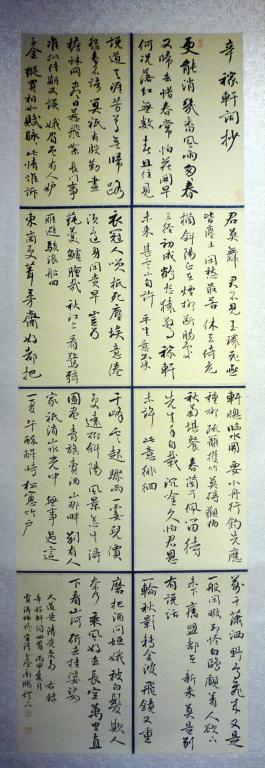 辛稼軒詞抄
更能消幾番風雨匆匆春
又歸去惜春常怕花開早
何況落紅無數春且住見
說道天涯芳草無歸路
怨春不語算只有殷勤畫
檐蛛網盡日惹飛絮長門事
準擬佳期又誤蛾眉曾有人妒
千金縱買相如賦脈脈此情誰訴
君莫舞君不見玉環飛燕
皆塵土閑愁最苦休去倚危
欄斜陽正在煙柳斷腸處
三徑初成鶴怨猿驚稼軒
未來甚雲山自許平生意氣
衣冠人笑抵死塵埃意倦
須還身閑貴早豈為
蓴羹鱸膾哉秋江上看驚弦
雁避駭浪船回
東岡更葺茅齋好都把
軒窗臨水開要小舟行釣先應
種柳疏籬護竹莫礙觀梅
秋菊堪餐春蘭可佩留待
先生手自栽沉吟久怕君恩
未許此意徘徊
千峰雲起驟雨一霎兒價
更遠樹斜陽風景怎生
圖畫青旗賣酒山那畔別有人
家只消山水光中無事過這
一夏午醉醒時松窗竹戶
萬千瀟灑野鳥飛來又是
一般閑暇卻怪白鷗覷着人欲下
未下舊盟都在新來莫是別
有說話
一輪秋影轉金波飛鏡又重
磨把酒問姮娥被白髮欺人
奈何乘風好去長空萬里直
下看山河斫去桂婆娑
人道是清光更多 右錄
辛稼軒詞四首丙申